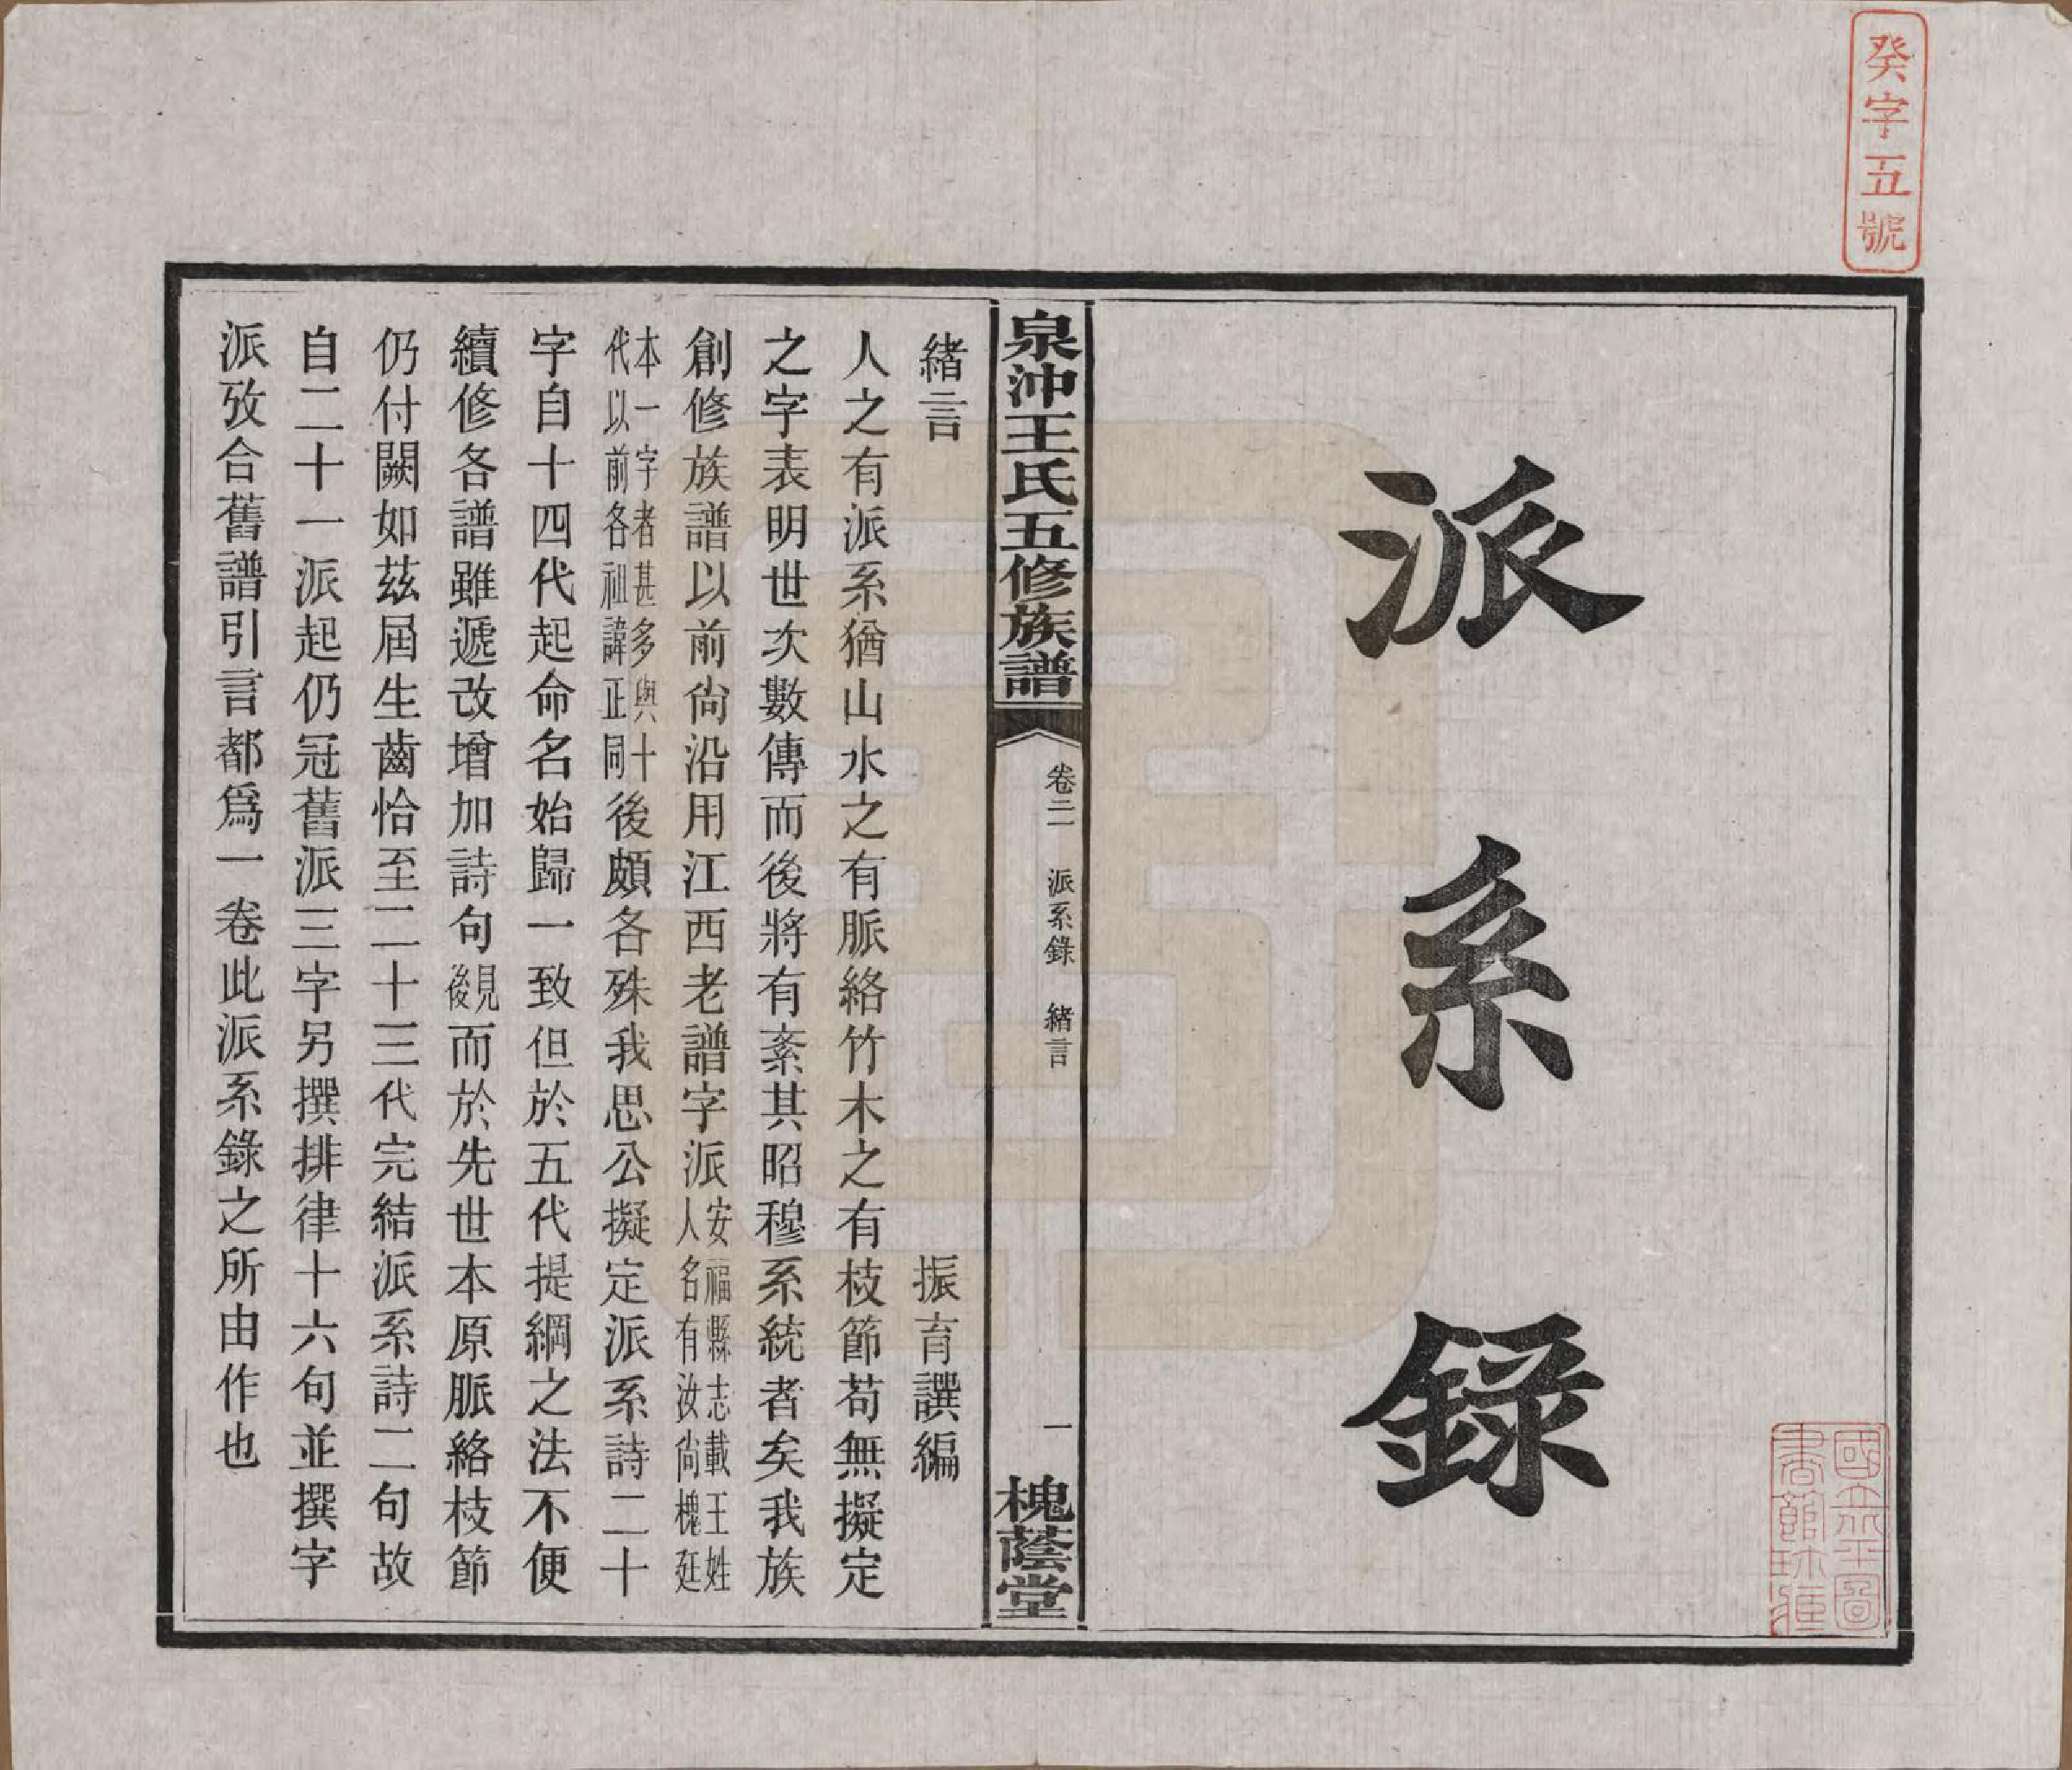 癸字五號
派系錄
國立北平圖書館珍藏
泉沖王氏五修族譜
卷二 派系錄 緒言
一
槐蔭堂
緒言 振育譔編
人之有派系猶山水之有脈絡竹木之有枝節苟無擬定
之字表明世次數傳而後將有紊其昭穆系統者矣我族
創修族譜以前尙沿用江西老譜字派安福縣志載王姓人名有汝尙槐廷
本一字者甚多與十代以前各祖諱正同後頗各殊我思公擬定派系詩二十
字自十四代起命名始歸一致但於五代提綱之法不便
續修各譜雖遞改增加詩句見後而於先世本原脈絡枝節
仍付闕如茲屆生齒恰至二十三代完結派系詩二句故
自二十一派起仍冠舊派三字另撰排律十六句並撰字
派攷合舊譜引言都爲一卷此派系錄之所由作也